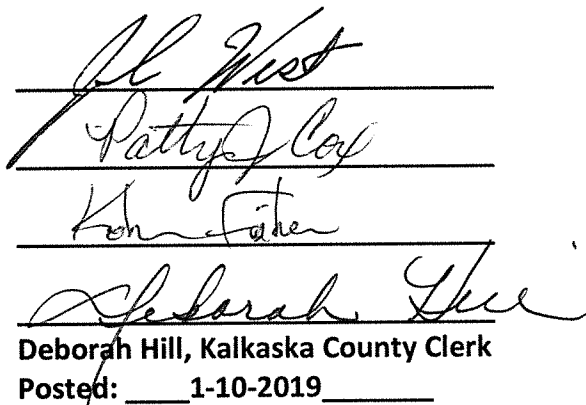 West
Patty J Cox
Deborah Hill
Deborah Hill, Kalkaska County Clerk
Posted: ____1-10-2019________